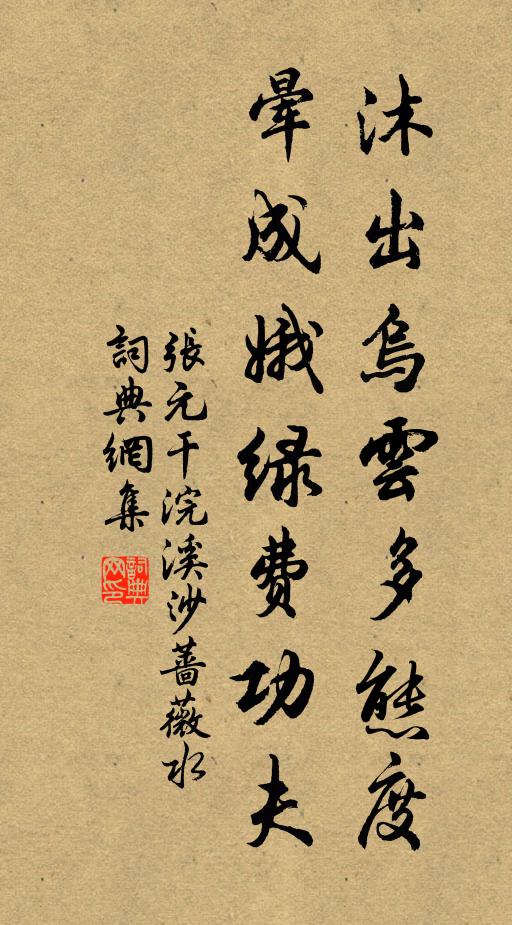 沐出烏雲多態度
暈成娥绿費功夫
張元干浣溪沙薔薇水
詞典網集
詞典網印